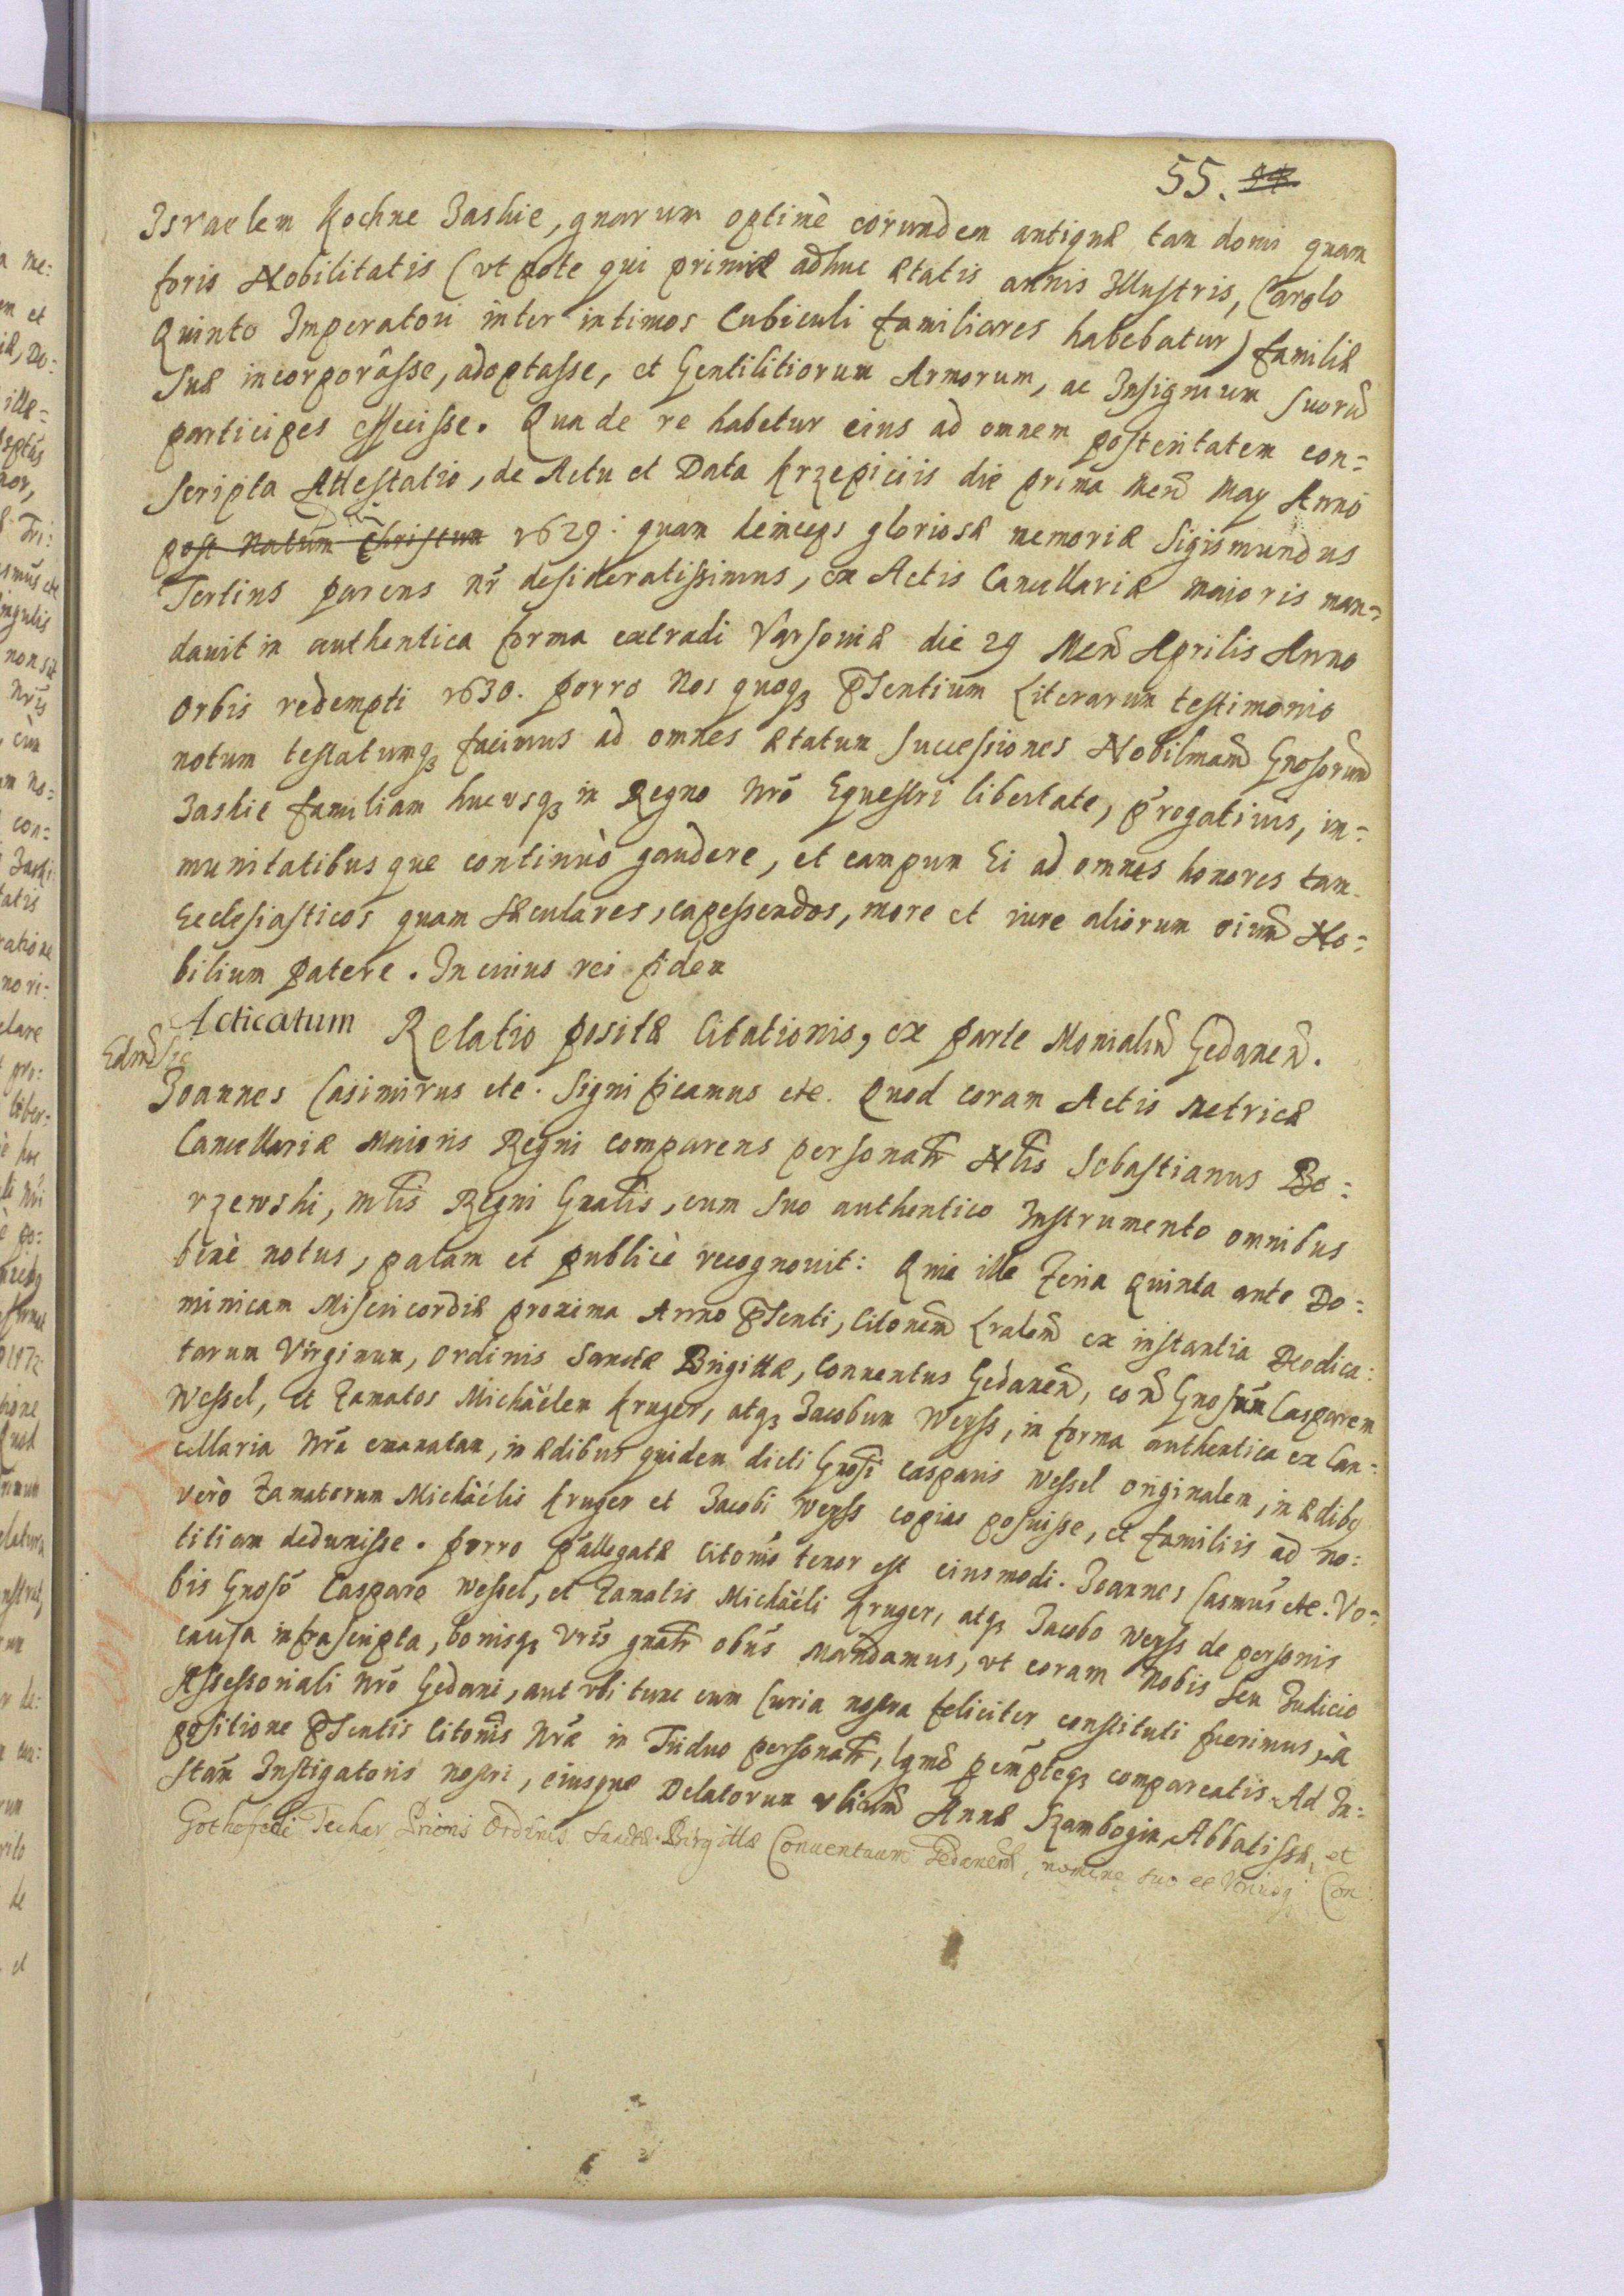 55. 
Israelem Kochne Jaskie, gnarum optimè eorundem antiquæ tam domi quam
foris Nobilitatis (vt pote qui primæ adhuc ætatis annis Illustris, Carolo
Quinto Imperatori inter intimos Cubiculi familiares habebatur) familiæ
suæ incorporâsse, adoptasse, et Gentilitiorum Armorum, ac Insignium suorũ
participes effecisse. Qua de re habetur eius ad omnem posteritatem con=
scripta Attestatio, de Actu et Data Krzepiciis die prima Men̄ May Anno
post Natum Christum 1629: quam deinceps gloriosæ memoriæ Sigismundus
Tertius parens nr̃ desideratissimus, ex Actis Cancellariæ maioris man=
dauit in authentica forma extradi Varsouiæ die 29 Men̄ Aprilis Anno
Orbis redempti 1630. Porro Nos quoqȝ p̃sentium Literarum testimonio
notum testatumqȝ facimus ad omnes ætatum successiones Nobilmam̄ Gnosorum̄
Jaskie familiam hucvsqȝ in Regno Nrõ Equestri libertate, p̃rogatiuis, im=
munitatibusque continuò gaudere, et campum Ei ad omnes honores tam
Ecclesiasticos quam Sæculares, capessendos, more et iure aliorum oium̄ No=
bilium patere. In cuius rei fidem
Acticatum Relatio positæ Citationis, ex parte Monialiū Gedanen̄.
Joannes Casimirus etc. Significamus etc. Quod coram Actis Metricæ
Cancellariæ Maioris Regni comparens personatr̃ Nlis̃ Sebastianus Bo=
rzewski, mlis̃ Regni Gnalis̃, cum suo authentico Instrumento omnibus
benè notus, palam et publicè recognouit: Quia ille Feria Quinta ante Do=
minicam Misericordiæ proxima Anno p̃senti, Citonem̃ Lralem̃ ex instantia Deodica=
tarum Virginum, Ordinis Sanctæ Brigittæ, Conuentus Gedanen̄, con̄ Gnosum Casparem
Wessel, et Famatos Michäelem Kruger, atqȝ Jacobum Weyss, in forma authentica ex Can=
cellaria Nrã emanatam, in ædibus quidem dicti Gnosi Casparis Wessel originalem, in ædibq
verò Famatorum Michäelis Kruger et Jacobi Weyss copias posuisse, et familiis ad no=
titiam deduxisse. Porro p̃allegatæ Citonis̃ tenor est eiusmodi. Joannes Casmus̃ etc. Vo=
bis Gnosõ Casparo Wessel, et Famatis Michäeli Kruger, atqȝ Jacobo Weyss de personis
causa infrascripta, bonisqȝ Vrĩs gnatr̃ obus̃ Mandamus, vt coram Nobis seu Judicio
Assessoriali Nrõ Gedani, aut vbi tunc cum Curia nostra feliciter constituti fuerimus, à
positione p̃sentis Citonis̃ Nræ̃ in Triduo personatr̃, lgmẽ pem̃pteqȝ compareatis. Ad In=
stam̃ Instigatoris nostri, eiusque Delatorum Annæ Szambogin, Abbatissæ, et
Gothofredi Techer Prioris Ordinis Sanctæ Birgittæ Conuentuum Gedanen̄, nomine suo et Con